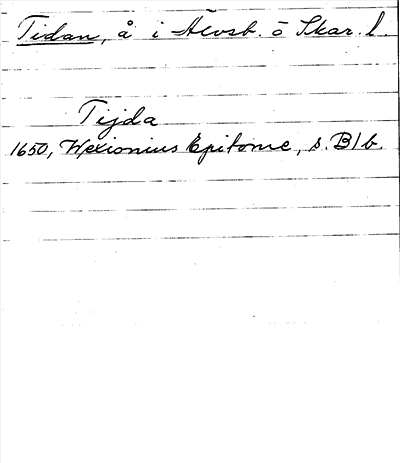 Tidan, å i Älvsb. o Skar. l.
Tijda
1650, Wexionius Epitome, s. B1b.